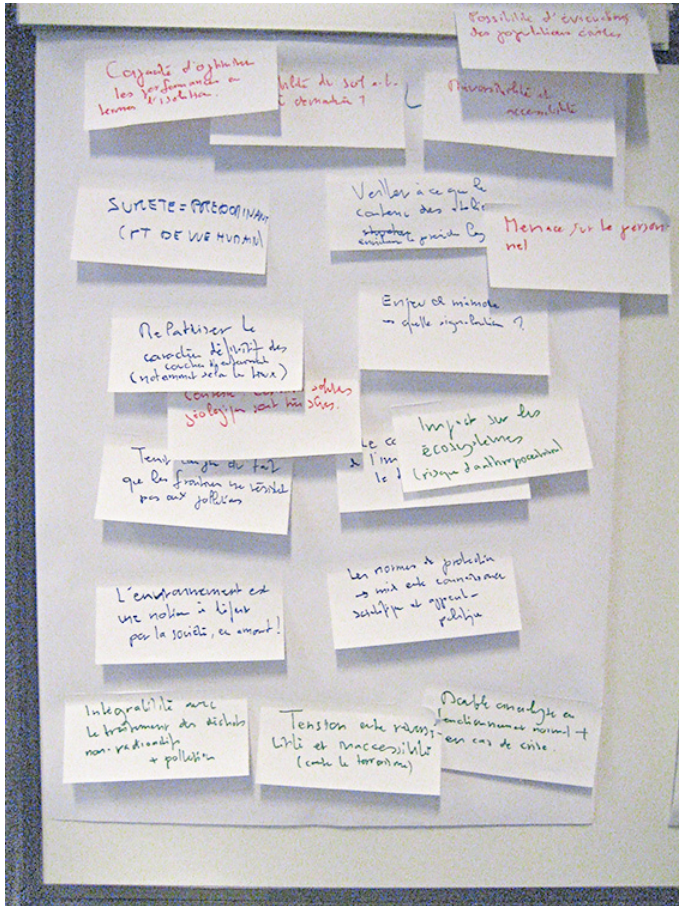 Possibilité d'évacuations
des populations civiles
Capacité d'optimiser
les performances en
termes d'isolation.
demain ?
Réversibilité et
accessibilité
SURETE = PREDOMINANT
(PT DE VUE HUMAIN)
Veiller à ce que le
contenu des
Menace sur le person-
nel
Enjeu de mémoire
→ quelle signalisation ?
Relativiser le
caractère définitif des
couches
(notamment selon le lieu)
géologiques sont très sûres.
Impact sur les
écosystèmes
(risque d'anthropocentrisme)
Tenir compte du fait
que les frontières ne résistent
pas aux pollutions
L'environnement est
une notion à définir
par la société, en amont !
Les normes de protection
→ mix entre connaissance
scientifique et
politique
Intégrabilité avec
le traitement des déchets
non-radioactifs
+ pollution
Tension entre réversi-
bilité et inaccessibilité
(contre le terrorisme)
Double analyse en
fonctionnement normal +
en cas de crise.